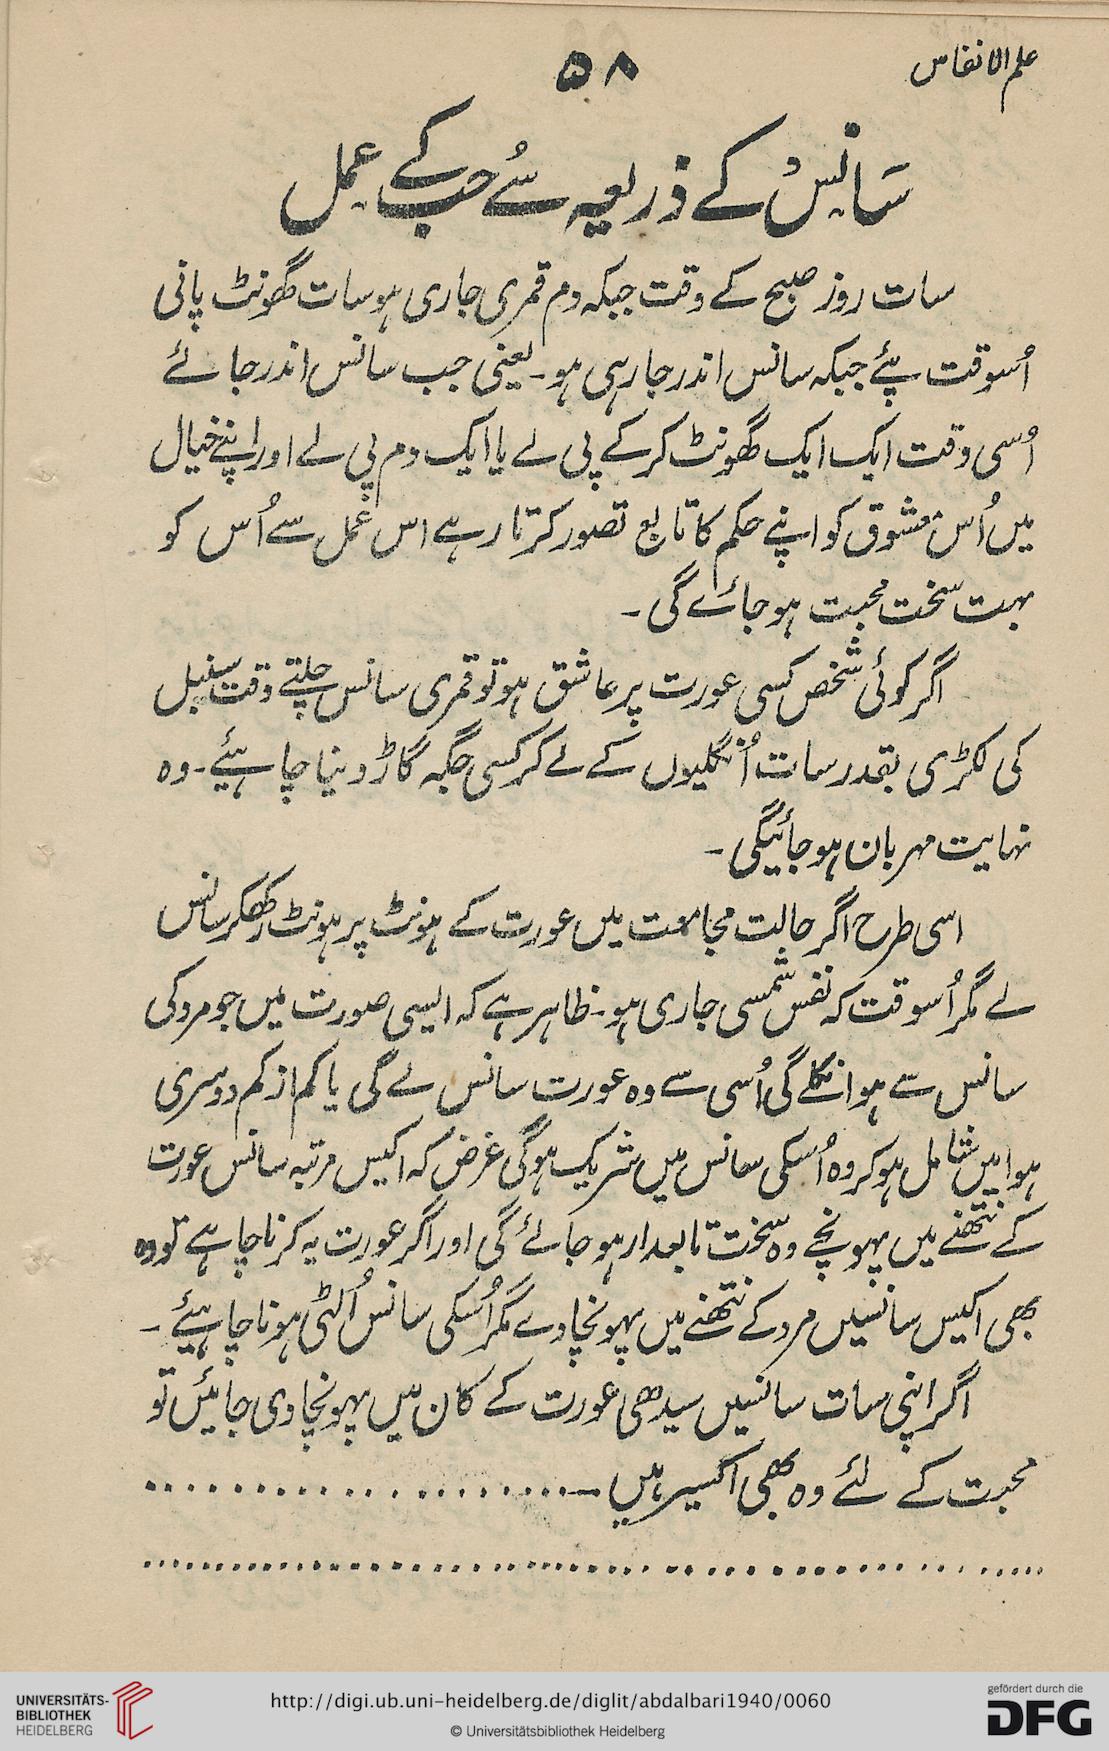 علم الانفاس
۵۸
سانس کے ذریعہ سے حُب کے عمل
سات روز صبح کے وقت جبکہ دم قمری جاری ہو سات گھونٹ پانی
اُسوقت پئے جبکہ سانس اندر جارہی ہو۔ یعنی جب سانس اندر جائے
اُسی وقت ایک ایک گھونٹ کرکے پی لے یا ایک دم پی لے اور اپنے خیال
میں اُس معشوق کو اپنے حکم کا تابع تصور کرتا رہے اس عمل سے اُس کو
بہت سخت محبت ہو جائے گی۔
اگر کوئی شخص کسی عورت پر عاشق ہو تو قمری سانس چلتے وقت سنبل
کی لکڑی بقدر سات اُنگلیوں کے لے کر کسی جگہ گاڑ دینا چاہئیے۔ وہ
نہایت مہربان ہو جائیگی۔
اسی طرح اگر حالت مجامعت میں عورت کے ہونٹ پر ہونٹ رکھکر سانس
لے مگر اُسوقت کہ نفس شمسی جاری ہو۔ ظاہر ہے کہ ایسی صورت میں جو مرد کی
سانس سے ہوا نکلے گی اُسی سے وہ عورت سانس لے گی یا کم از کم دوسری
ہوا میں شامل ہو کر وہ اُسکی سانس میں شریک ہوگی غرض کہ اکیس مرتبہ سانس عورت
کے نتھنے میں پہونچے وہ سخت تابعدار ہو جائے گی اور اگر عورت یہ کرنا چاہے تو وہ
بھی اکیس سانسیں مرد کے نتھنے میں پہونچادے مگر اُسکی سانس اُلٹی ہونا چاہئیے۔
اگر اپنی سات سانسیں سیدھی عورت کے کان میں پہونچادی جائیں تو
محبت کے لئے وہ بھی اکسیر ہیں۔ ......................
..................................................
UNIVERSITÄTS-
BIBLIOTHEK
HEIDELBERG
http://digi.ub.uni-heidelberg.de/diglit/abdalbari1940/0060
© Universitätsbibliothek Heidelberg
gefördert durch die
DFG